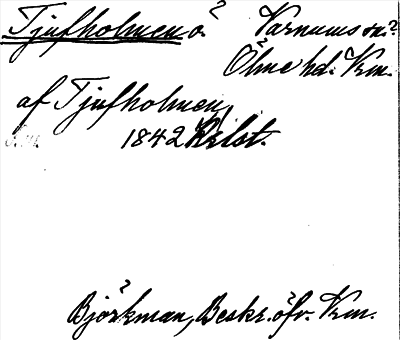 Tjufholmen ö. ? Varnums sn.?
Ölme hd. Vrm.
af Tjufholmen
1842 Relst.
Björkman, Beskr. öfv. Vrm.